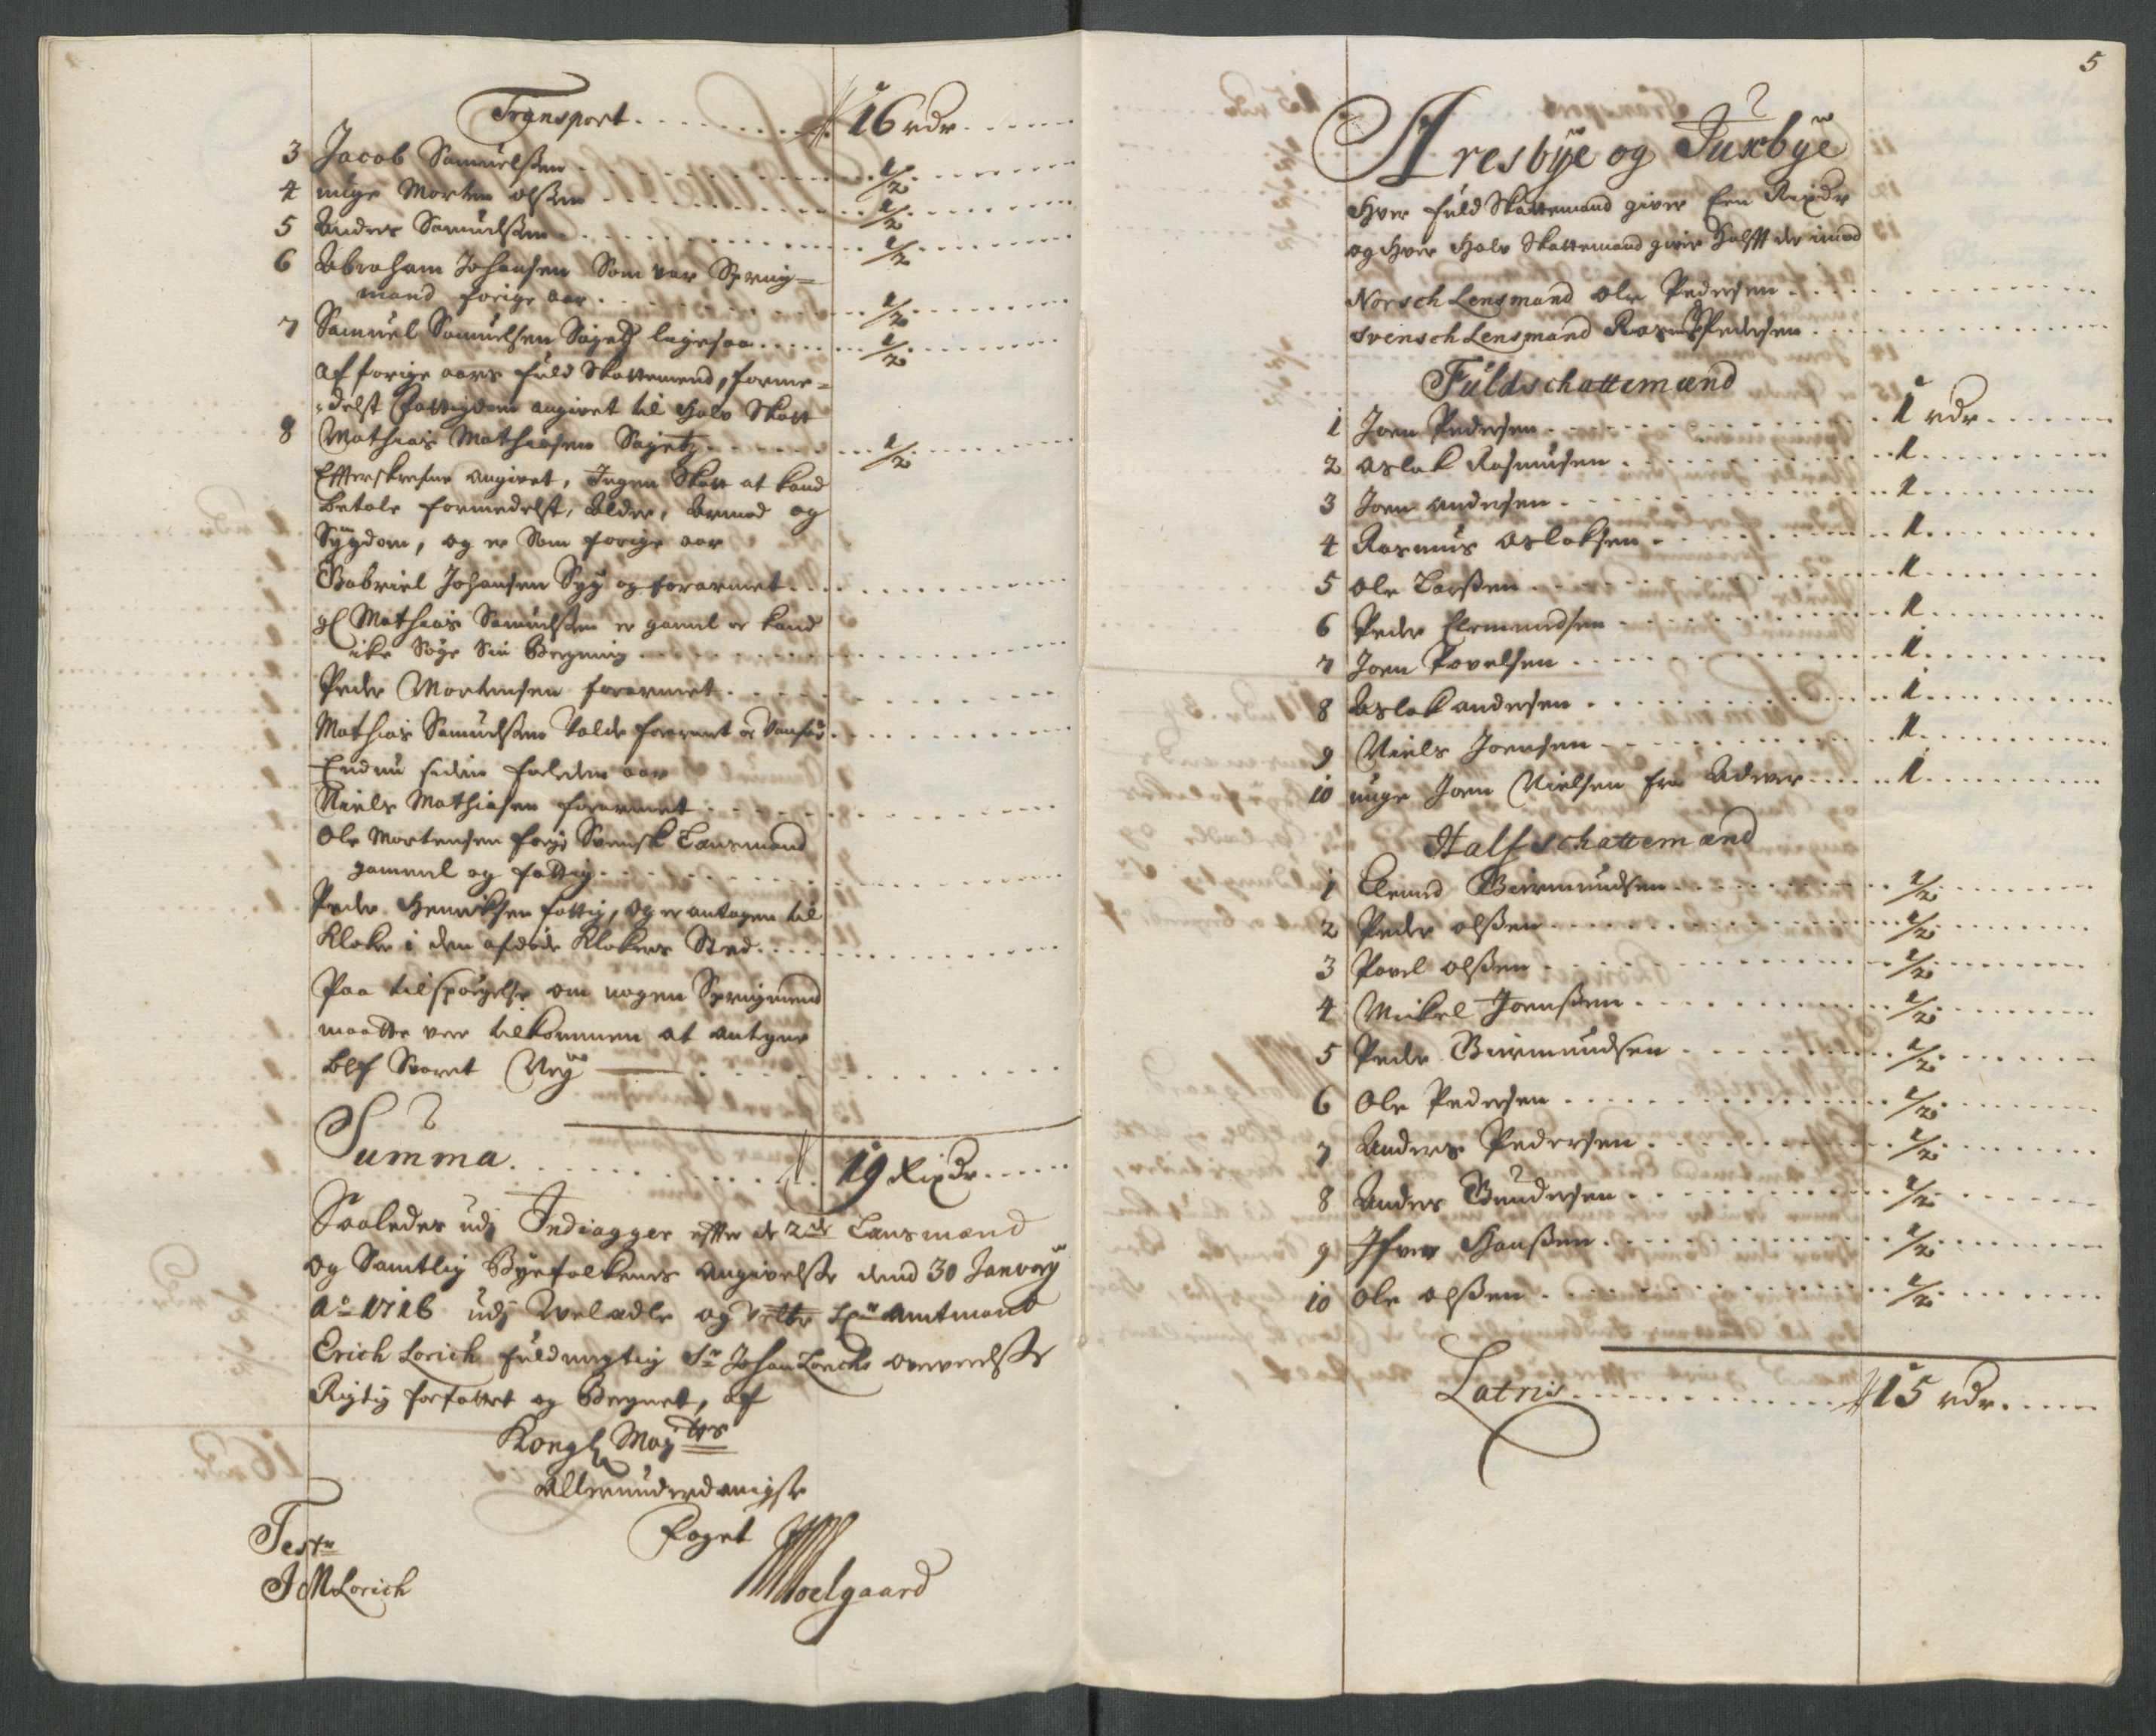 Transport 16 rdr
3 Jacob Samuelsen 1/2
4 unge Morten Olsen 1/2
5 Anders Samuelsen 1/2
6 Abraham Johansen Som var Spring=
mand forige aar 1/2
7 Samuel Samuelsen Sagtes ligesaa 1/2
Af forige aars fuld Skattemend, forme=
delst fattigdom angivet til halv Skatt
8 Mathias Mathiasen Sajetz 1/2
Effterskrefne angivet, Ingen Skatt at kand
betale formedelst, Alder, Armod og
Sygdom, og er Som forige aar
Gabriel Johansen Syg og forarmet
gl Mathias Samuelsen er gamel og kand
ike Søge Sin Bergning
Peder Mortensen forarmet
Mathias Samuelsen forarmet og Vanfør
Endnu siden forleden aar
Niels Mathiasen forarmet
Ole Mortensen forige Svensk Lansmand
gammel og fattig
Peder Henriksen fattig, og er antagen til
Kloker i den afdøde Klokers Sted
Paa tilspørgelse om nogen Springmend
maatte vere tilkommen at antegne
blef Svaret Ney
Summa 19 Rixdr
Saaledes udj Indiagger effter de 2de Lansmænd
og Samtlig Byefolkenes angivelse dend 30 January
Ao 1716 udj Velædle og Hr Amtmand
Erich Lorich fuldmegtig Sr Johan Lorichs oververelse
Rigtig forfattet og Beregnet, af
Kongl Mayts
Allerunderdanigste
Foget
Moelgaard
Test
J M Lorich
5
Aresbye og Juxbye
Hver fuld Skattemand giver Een Rixdr
og Hver Halv Skattemand giver Halfft der imod
Norsch Lensmand Ole Pedersen
Svensch Lensmand Rasmus Pedersen
Fuldschattemænd
1 Joen Pedersen 1 rdr
2 Aslak Rasmusen 1
3 Joen Andersen 1
4 Rasmus Aslaksen 1
5 Ole Larsen 1
6 Peder Clemendsen 1
7 Joen Povelsen 1
8 Aslak Andersen 1
9 Niels Joensen 1
10 unge Joen Nielsen fra 1
Halfschattemænd
1 Guirmundsen 1/2
2 Peder Olsen 1/2
3 Povel Olsen 1/2
4 Mickel Joensen 1/2
5 Peder Guirmundsen 1/2
6 Ole Pedersen 1/2
7 Anders Pedersen 1/2
8 Anders Gundersen 1/2
9 Ifver Hansen 1/2
10 Ole Olsen 1/2
Latris 15 rdr